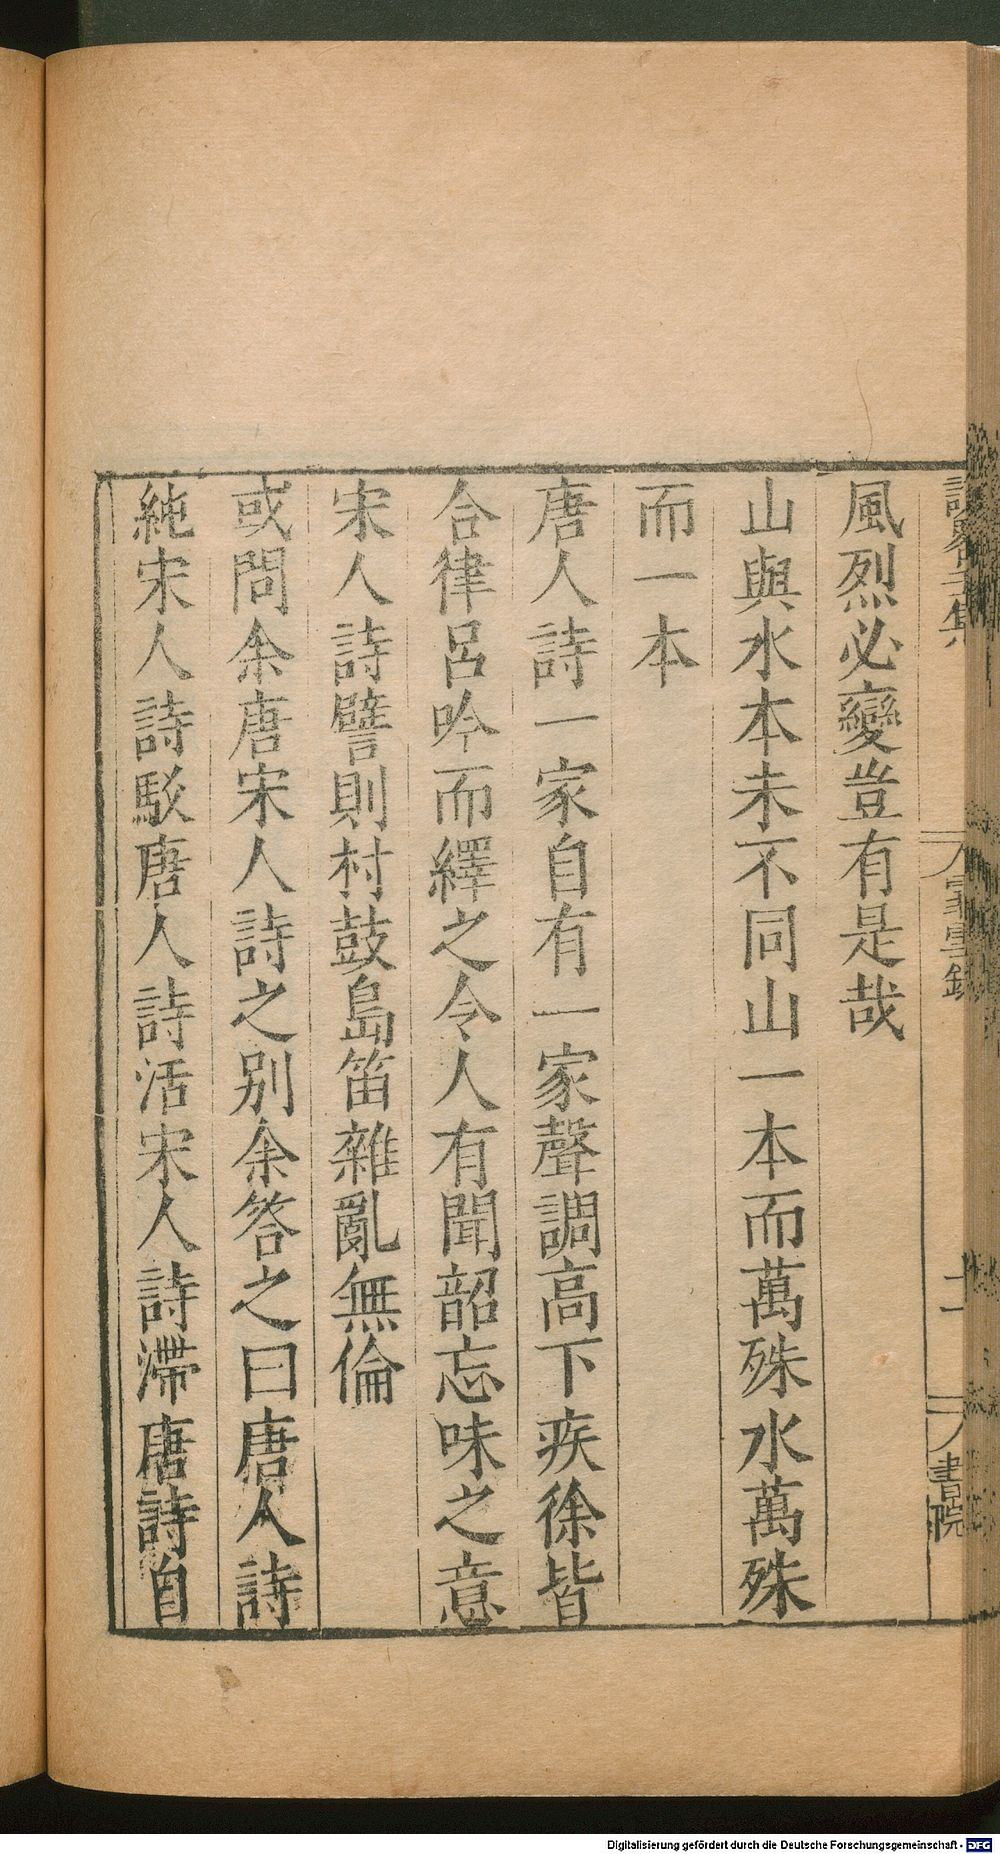 風烈必變豈有是哉
山與水本未不同山一本而萬殊水萬殊
而一本
唐人詩一家自有一家聲調高下疾徐皆
合律呂吟而繹之令人有聞韶忘味之意
宋人詩譬則村鼓島笛雜亂無倫
或問余唐宋人詩之別余答之曰唐人詩
純宋人詩駁唐人詩活宋人詩滯唐詩自
霏雪錄
書院
Digitalisierung gefördert durch die Deutsche Forschungsgemeinschaft - DFG